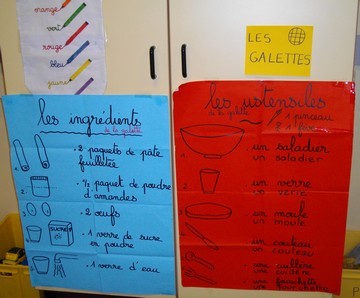 orange
vert
rouge
bleu
jaune
LES
GALETTES
les ingrédients
de la galette
1. 2 paquets de pâte
feuilletée
2. 1/2 paquet de poudre
d'amandes
3. 2 œufs
SUCRE
1 verre de sucre
en poudre
5. 1 verre d'eau
les ustensiles
de la galette
1 pinceau
un saladier
un saladier
un verre
un verre
un moule
un moule
un couteau
un couteau
une cuillère
une cuillère
une fourchette